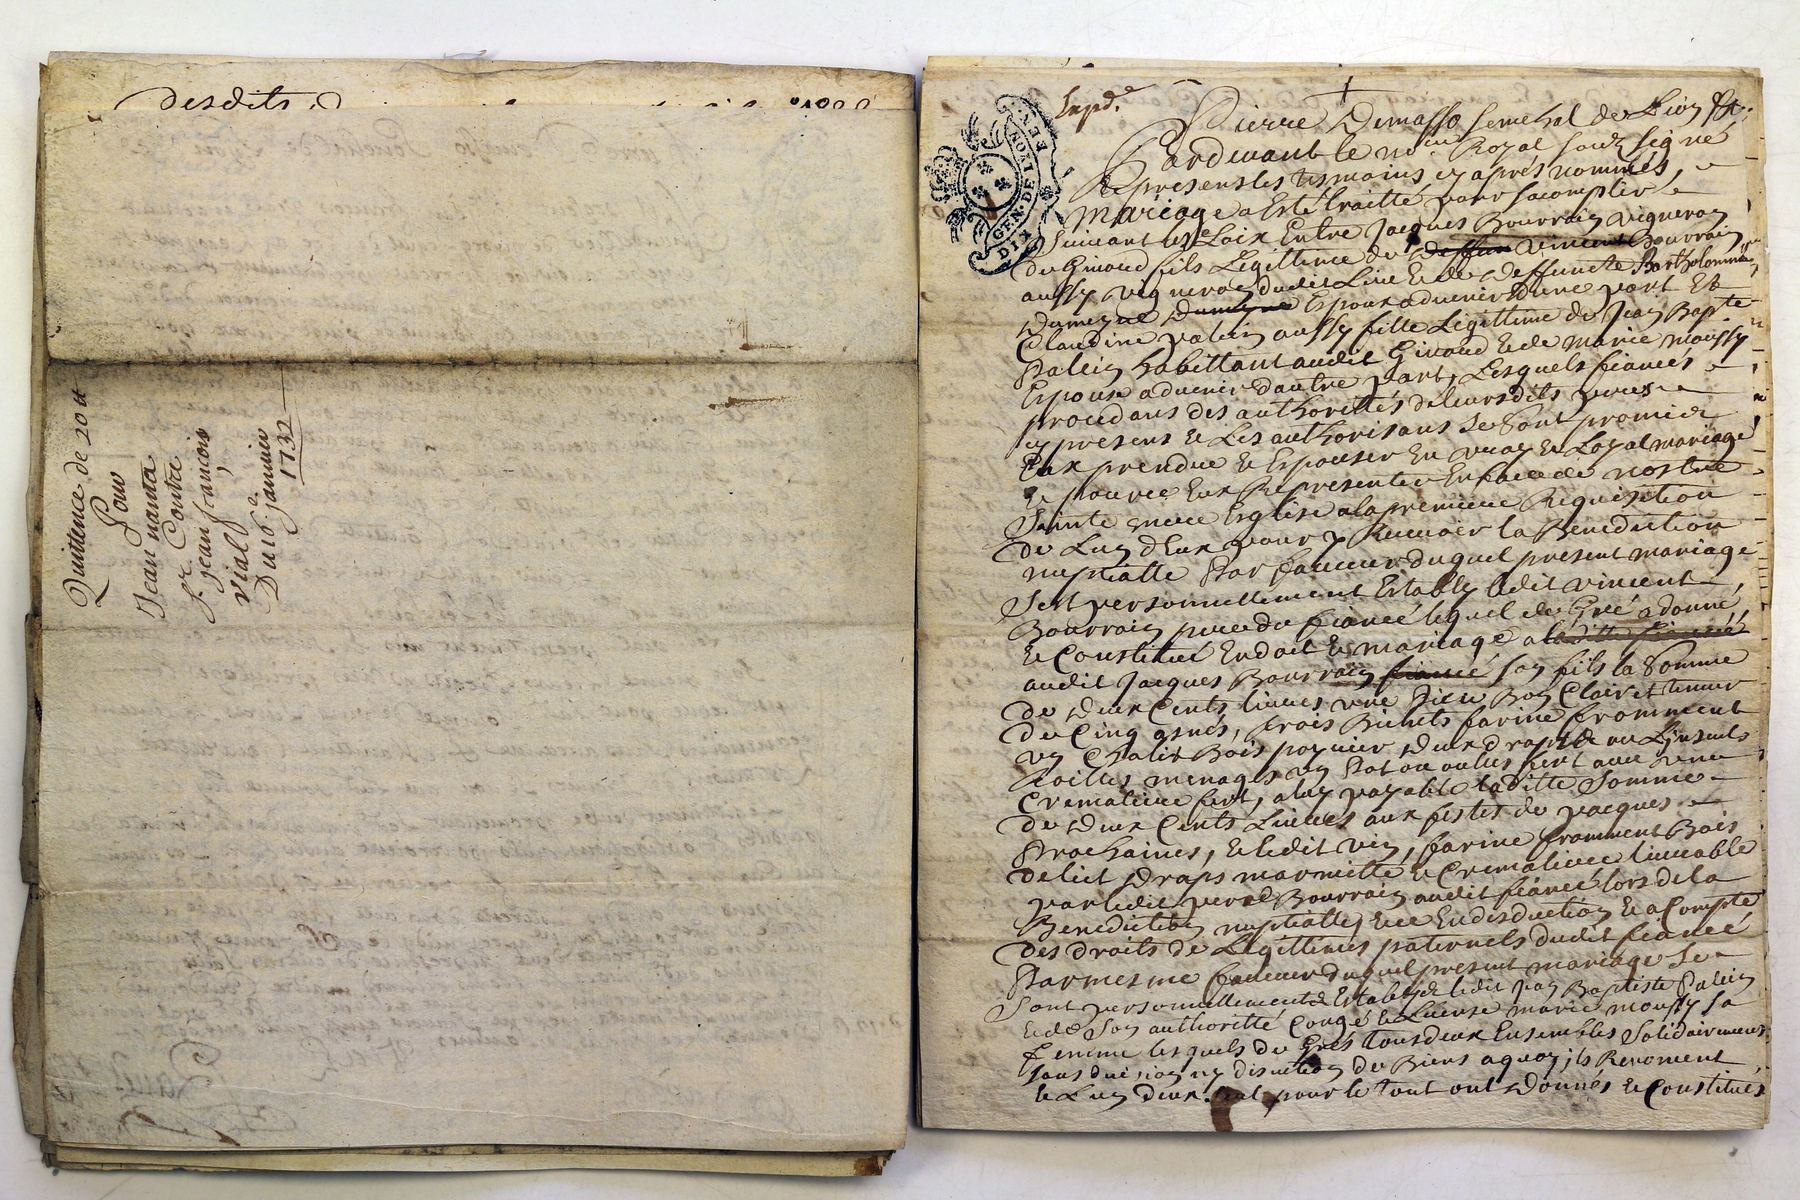 desdits
Quittence de 20 tt
Pour
Jean nanta
Contre
Sr jean francois
Vial,
Du 16e janvier
1732
GEN. DE LION
DIX
Exp.d.e
Pierre Dumasso senechal de Lion &c:
Pardevant le no.re Royal souzsigné
Et presens les tesmoins cy aprés nommés,
mariage a Esté traitté pour sacomplir
Suivant les Loix Entre Jacques Bourrain vigneron
de Givord fils Legittime de deffun vincent Bourrain
aussy vigneron dudit Lieu Et de deffuncte Bartholomie
Dumeyne Dumeyne Espoux advenir dune part Et
Claudine palein aussy fille Legittime de Jean Bap.te
Palein habittant audit Givord Et de marie moussy
Espouse advenir dautre part, Lesquels fiancés
procedans des authorittés de leursdits peres
cy presens Et Les authorisans se sont promis
Eux prendre Et Espouser En vray Et Loyal mariage
Et pour ce Eux Representer En face de nostre
Sainte mere Esglise a la premiere Requisition
de Lun dEux pour y Recevoir la Benediction
nuptialle Par faveur duquel present mariage
sest personnellement Estably ledit vincent
Bourrain pere du fiancé lequel de Gré a donné
Et Constitué En dot Et mariage a laditte fiancée
audit Jacques Bourrain fiancé son fils la Somme
de deux Cents livres une Piece Bon Clairet teneur
de Cinq asnés, trois Bichets farine fromment
un Chalit Bois poyuier deux draps ou Linseuls
toilles menages un Pot ou oulles fert avec une
Cremaliere fert, a luy payable laditte Somme
de deux Cents Livres aux festes de pacques
Prochaines, Et ledit vin, farine fromment Bois
de lict draps marmitte Et Cremaliere livrable
par ledit pere Bourrain audit fiancé lors de la
Benediction nuptialle, Et ce En desduction Et a Compte
des droits de Legittimes paternels dudit fiancé
Par mesme faveur duquel present mariage se
sont personnellement Establys ledit Jean Baptiste Palein
Et de son authoritté Congé Et License marie moussy sa
femme lesquels de Grés tous deux Ensembles solidairement
sans division ny discution de Biens a quoy ils Renoncent
Et Lun deux seul pour le tout ont donnés Et Constitués